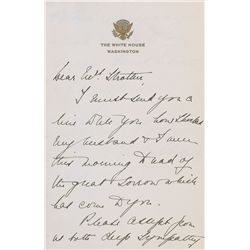 THE WHITE HOUSE
WASHINGTON
Dear Mrs Stratton,
I must send you a
line to tell you how shocked
my husband & I were
this morning to read of
the great sorrow which
has come to you.
Please accept from
us both deep sympathy